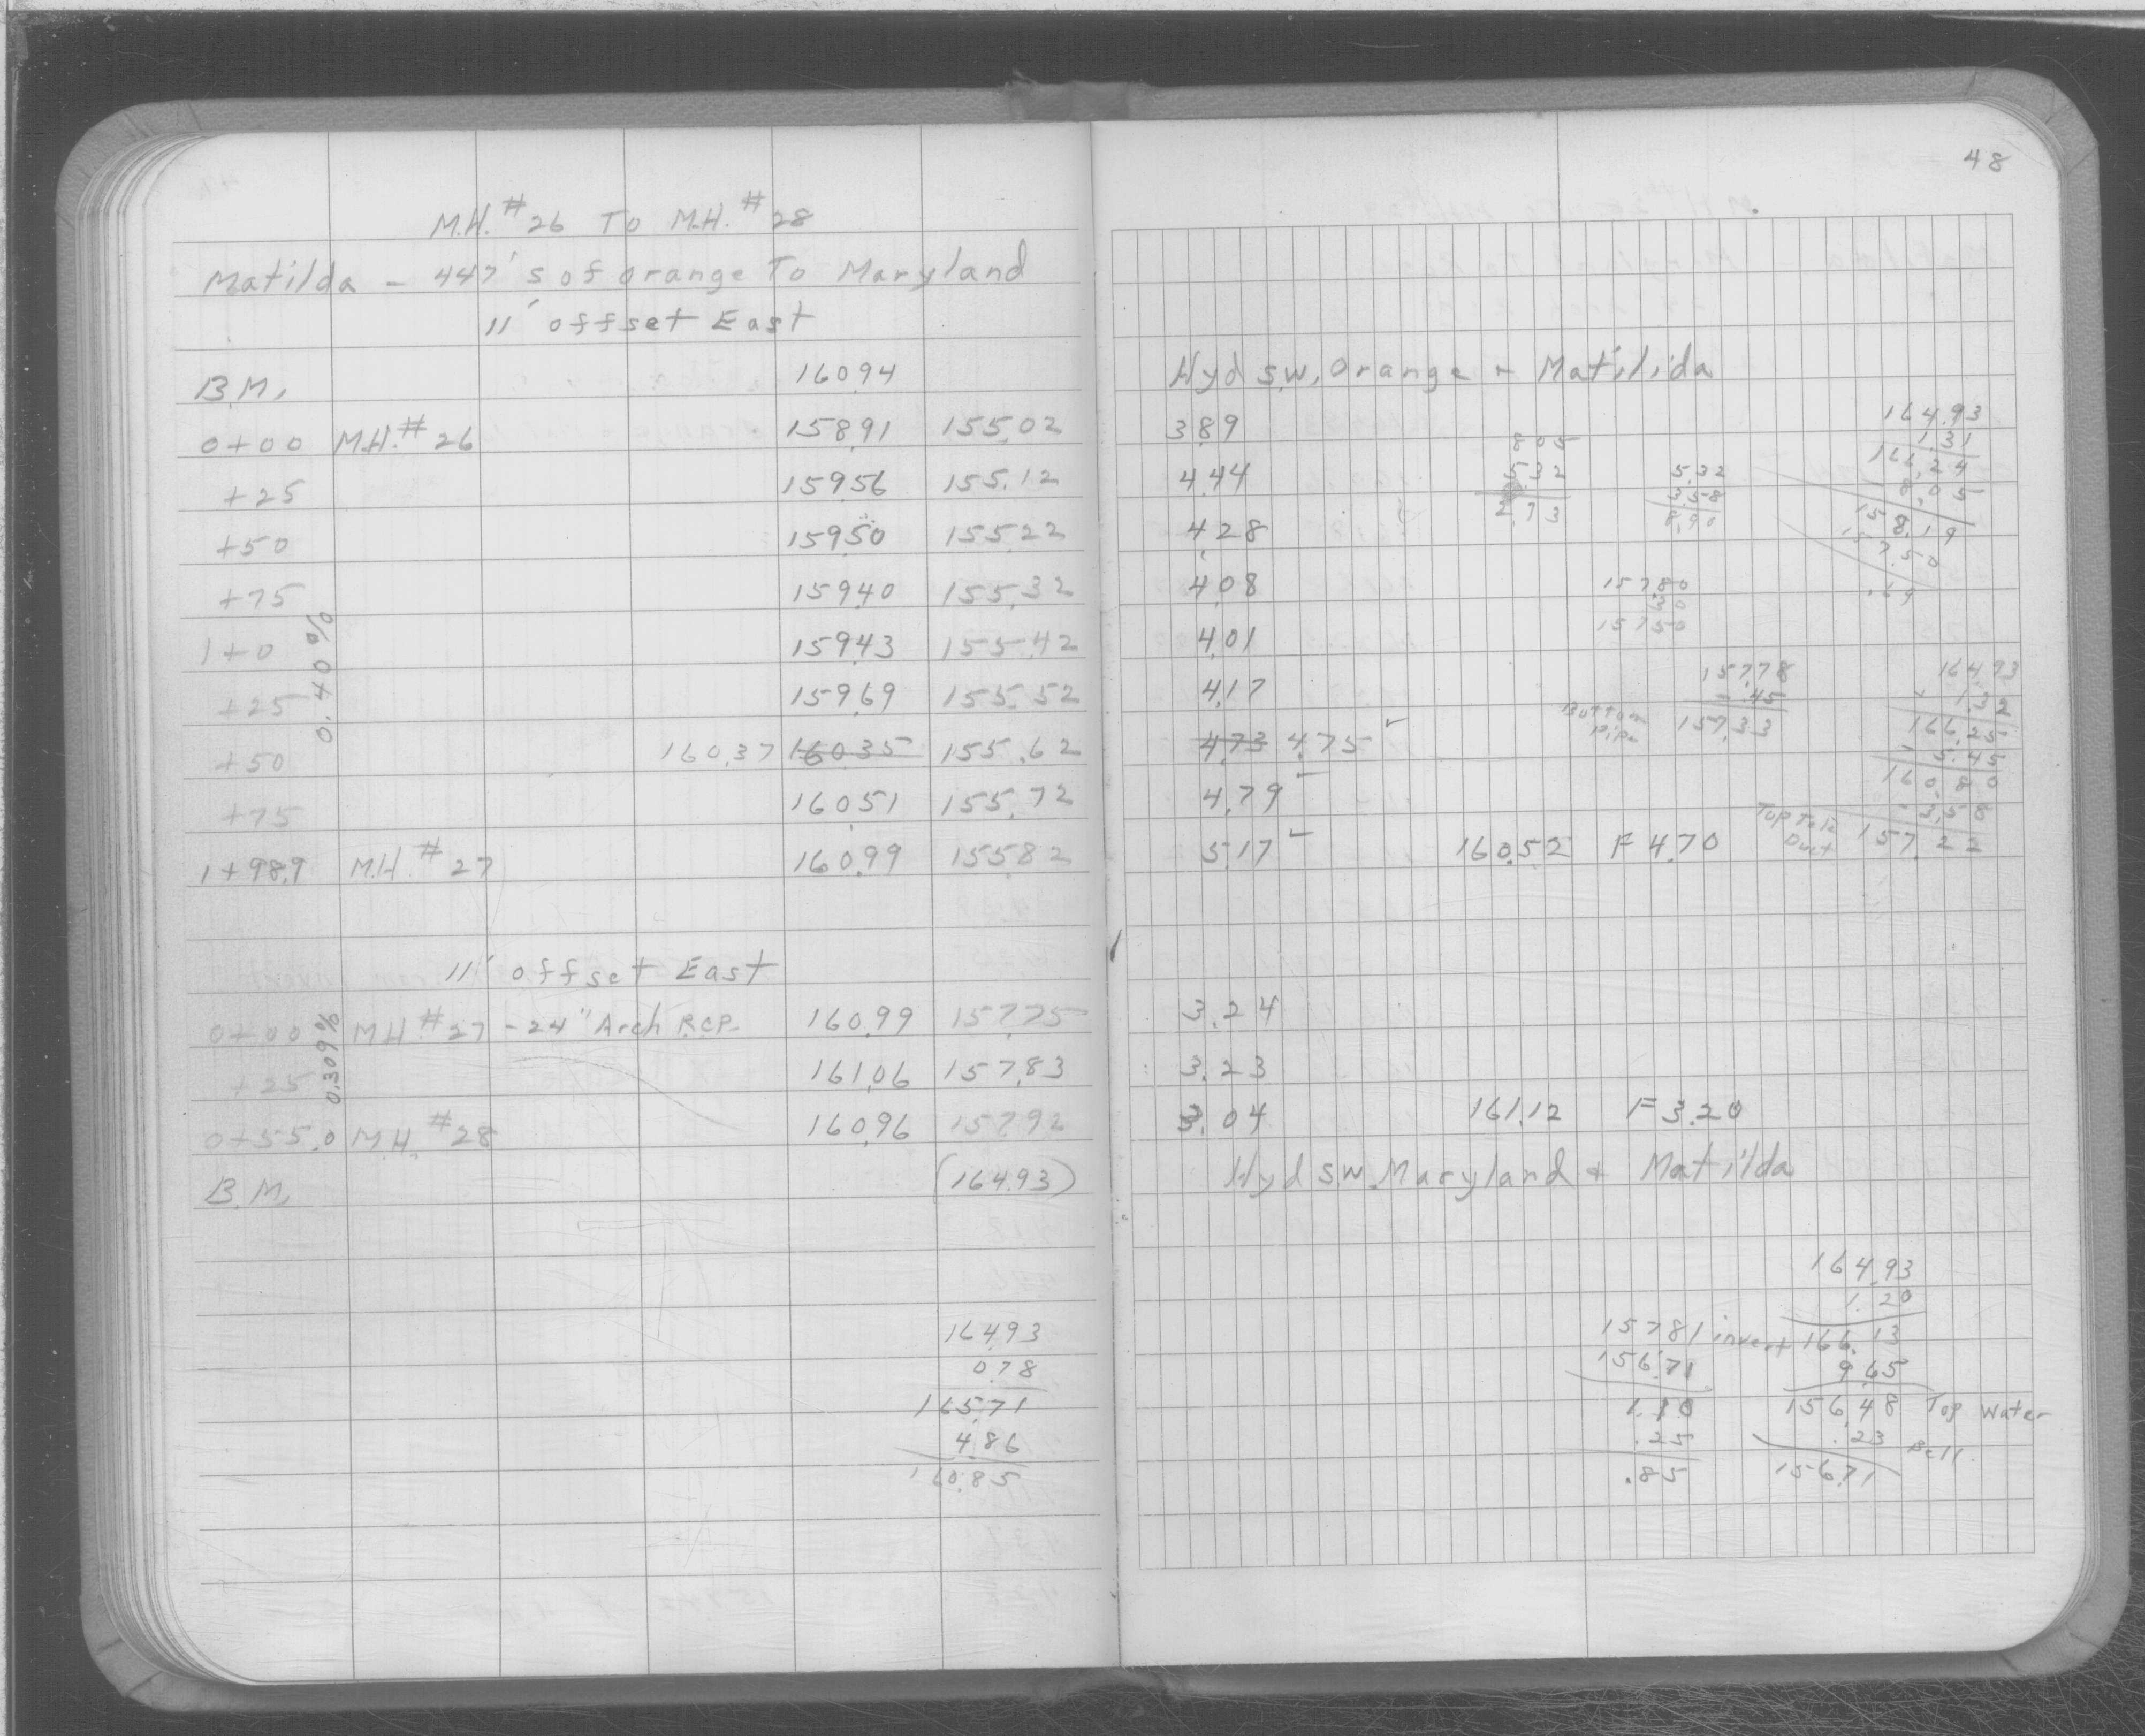 48
M.H. #26 To M.H. #28
Matilda - 447' S of Orange To Maryland
11' offset East
B.M. 160.94 Hyd S.W. Orange + Matilida
0+00 M.H. #26 158.91 155.02 3.89
+25 159.56 155.12 4.44
+50 159.50 155.22 4.28
+75 159.40 155.32 4.08
1+0 159.43 155.42 4.01
+25 159.69 155.52 4.17
+50 160.37 160.35 155.62 4.73 4.75 ✓
+75 160.51 155.72 4.79 ✓
1+98.9 M.H. #27 160.99 155.82 5.17 ✓ 160.52 F 4.70
0.40 %
8.05
5.32
2.73
5.32
3.58
8.90
164.93
1.31
166.24
8.05
158.19
157.50
.69
157.80
30
157.50
157.78
- .45
Bottom Pipe 157.33
164.93
1.32
166.25
5.45
160.80
- 3.58
Top Tele Duct 157.22
11' offset East
0+00 M.H. #27 - 24" Arch R.C.P. 160.99 157.75 3.24
+25 161.06 157.83 3.23
0+55.0 M.H. #28 160.96 157.92 3.04 161.12 F 3.20
0.309%
B.M. (164.93) Hyd S.W. Maryland + Matilda
164.93
0.78
165.71
4.86
160.85
157.81 invert
156.71
1.10
.25
.85
164.93
1.20
166.13
9.65
156.48 Top Water
.23 Bell
156.71